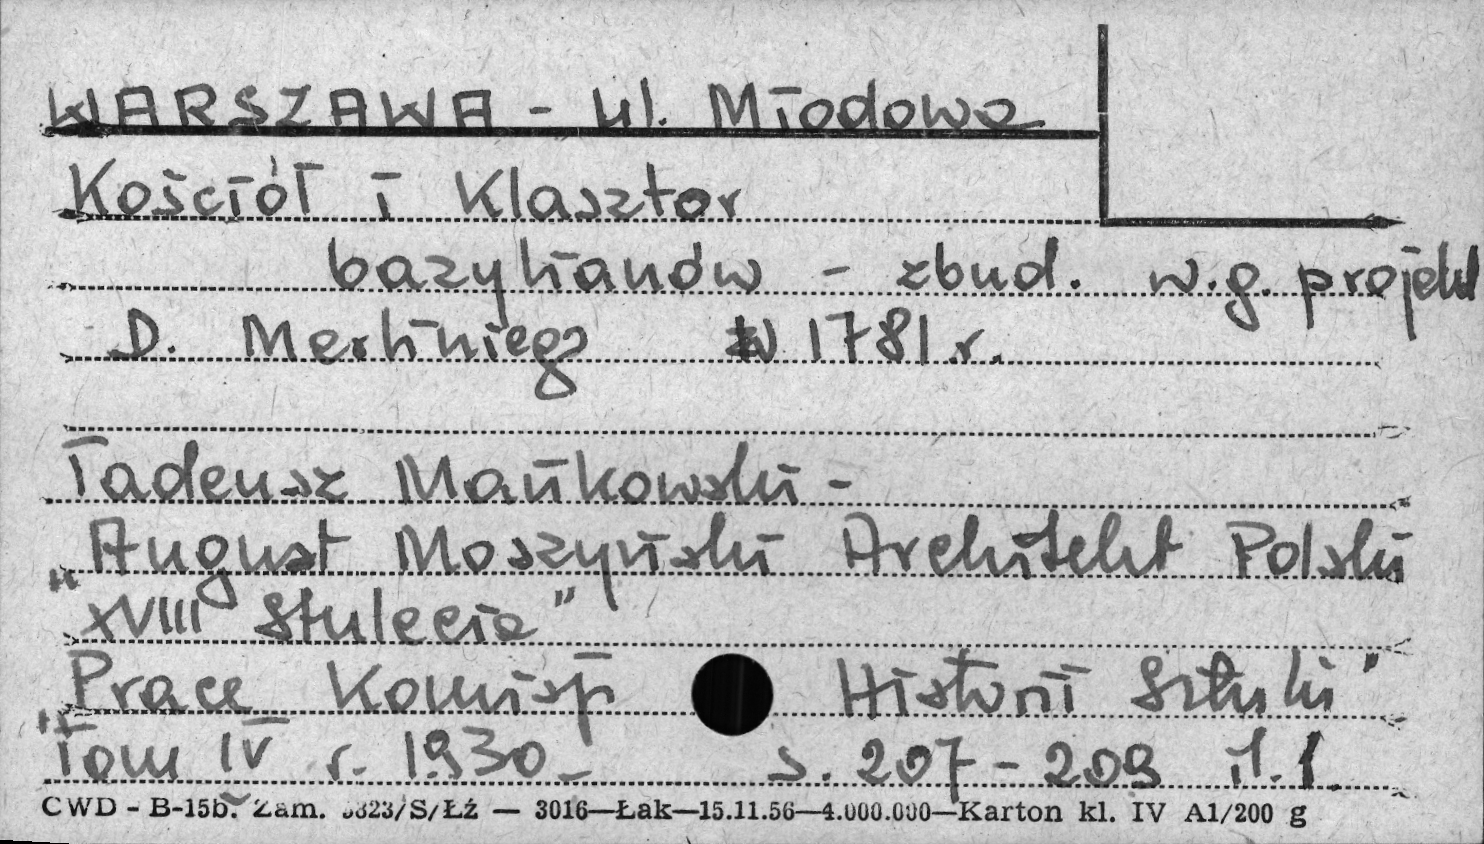 WARSZAWA - ul. Miodowa
Kościół i Klasztor
bazylianów - zbud. w.g. projekt
D. Merliniego w 1781 r.
Tadeusz Mańkowski -
"August Moszyński Architekt Polski
XVIII Stulecia"
"Prace Komisji Historii Sztuki"
Tom IV r. 1930 - s. 207-209 il. 1
CWD - B-15b. Zam. 5823/S/Łź — 3016—Łak—15.11.56—4.000.000—Karton kl. IV A1/200 g